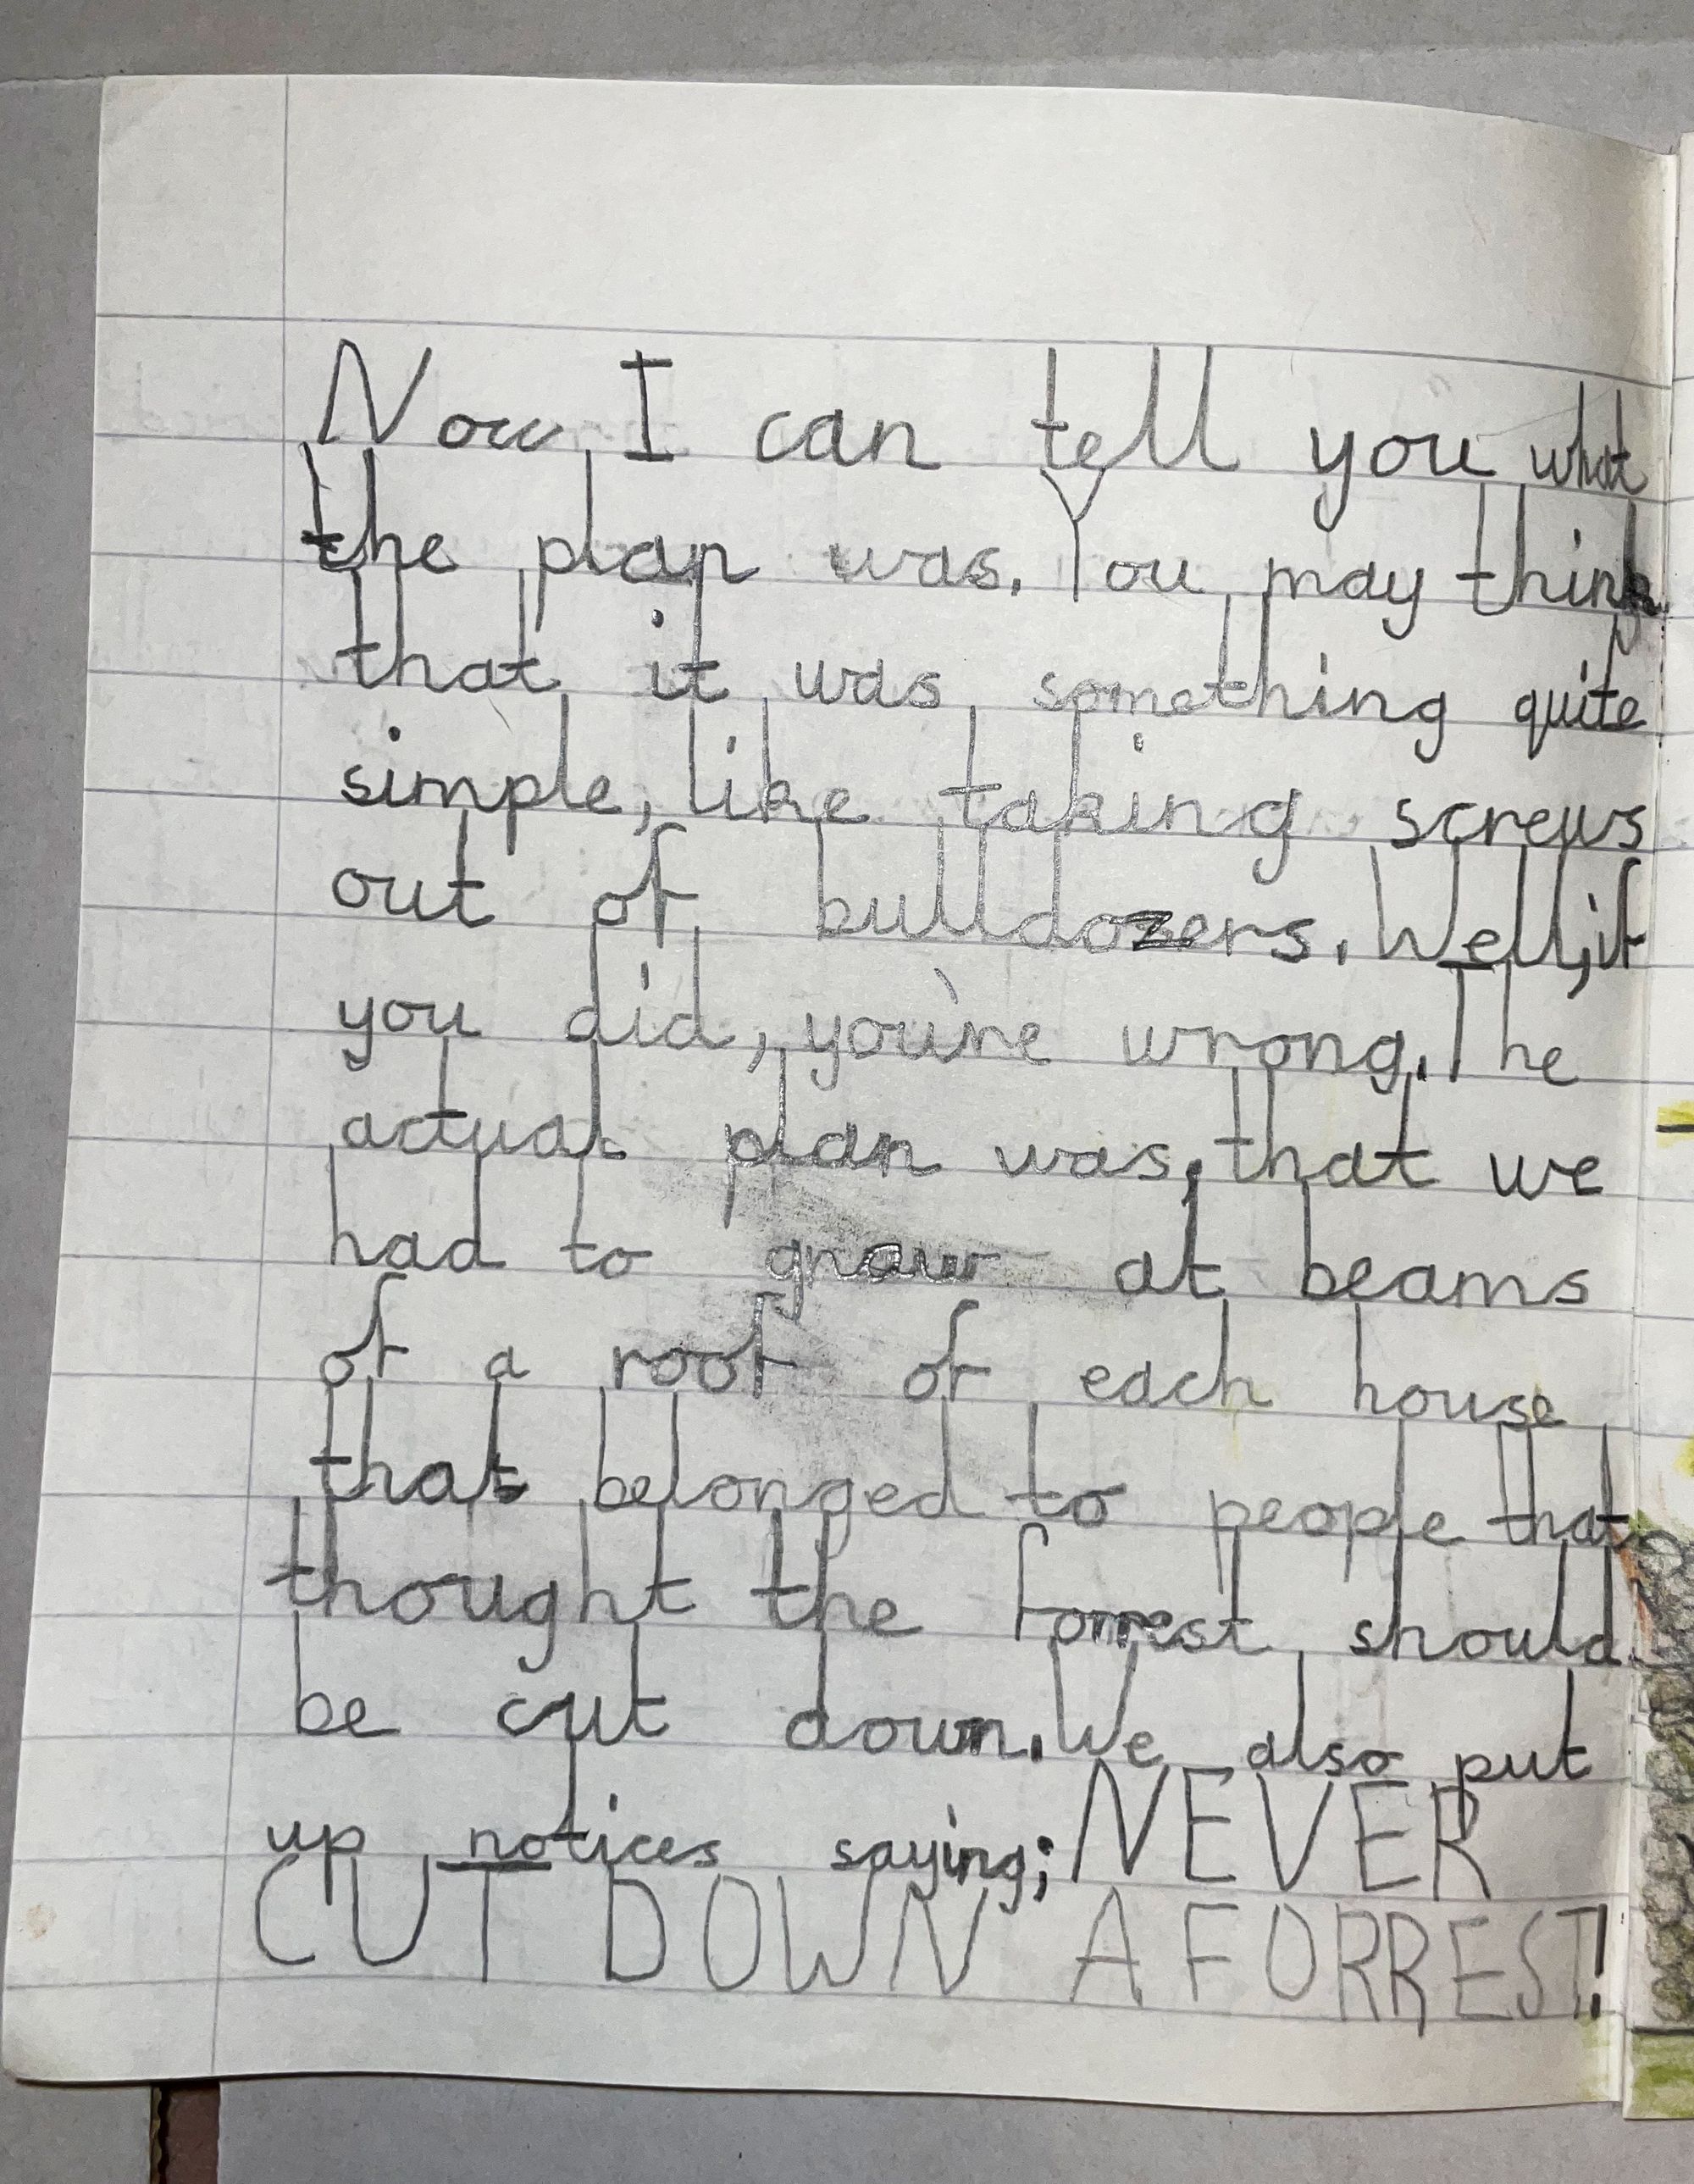 Now I can tell you what
the plan was. You may think
that it was something quite
simple, like taking screws
out of bulldozers. Well, if
you did, you're wrong. The
actual plan was, that we
had to gnaw at beams
of a roof of each house
that belonged to people that
thought the forrest should
be cut down. We also put
up notices saying; NEVER
CUT DOWN A FORREST!